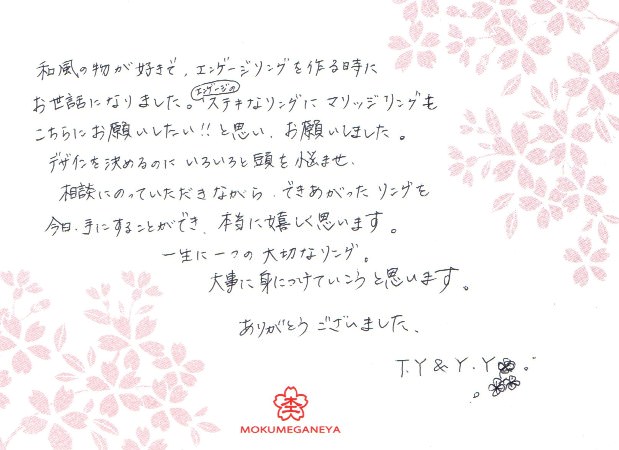 和風の物が好きで、エンゲージリングを作る時に
お世話になりました。エンゲージのステキなリングに マリッジリングも
こちらにお願いしたい!! と思い、お願いしました。
デザインを決めるのに いろいろと頭を悩ませ、
相談にのっていただきながら、できあがった リングを
今日、手にすることができ、本当に嬉しく思います。
一生に一つの 大切なリング。
大事に身につけていこうと思います。
ありがとうございました。
T.Y & Y.Y
杢
MOKUMEGANEYA